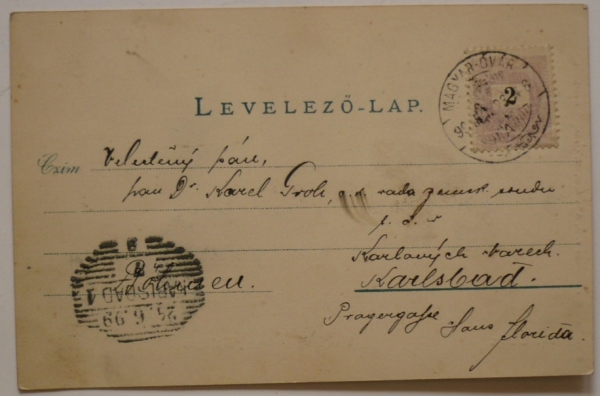 LEVELEZŐ-LAP.
MAGYAR-ÓVÁR
2
Czim
pán,
pan Dr. Karel Groh, c. k. rada zemsk. soudu
Karlových Varech.
Karlsbad.
Pragergasse Haus Florida.
KARLSBAD 1
24.6.99